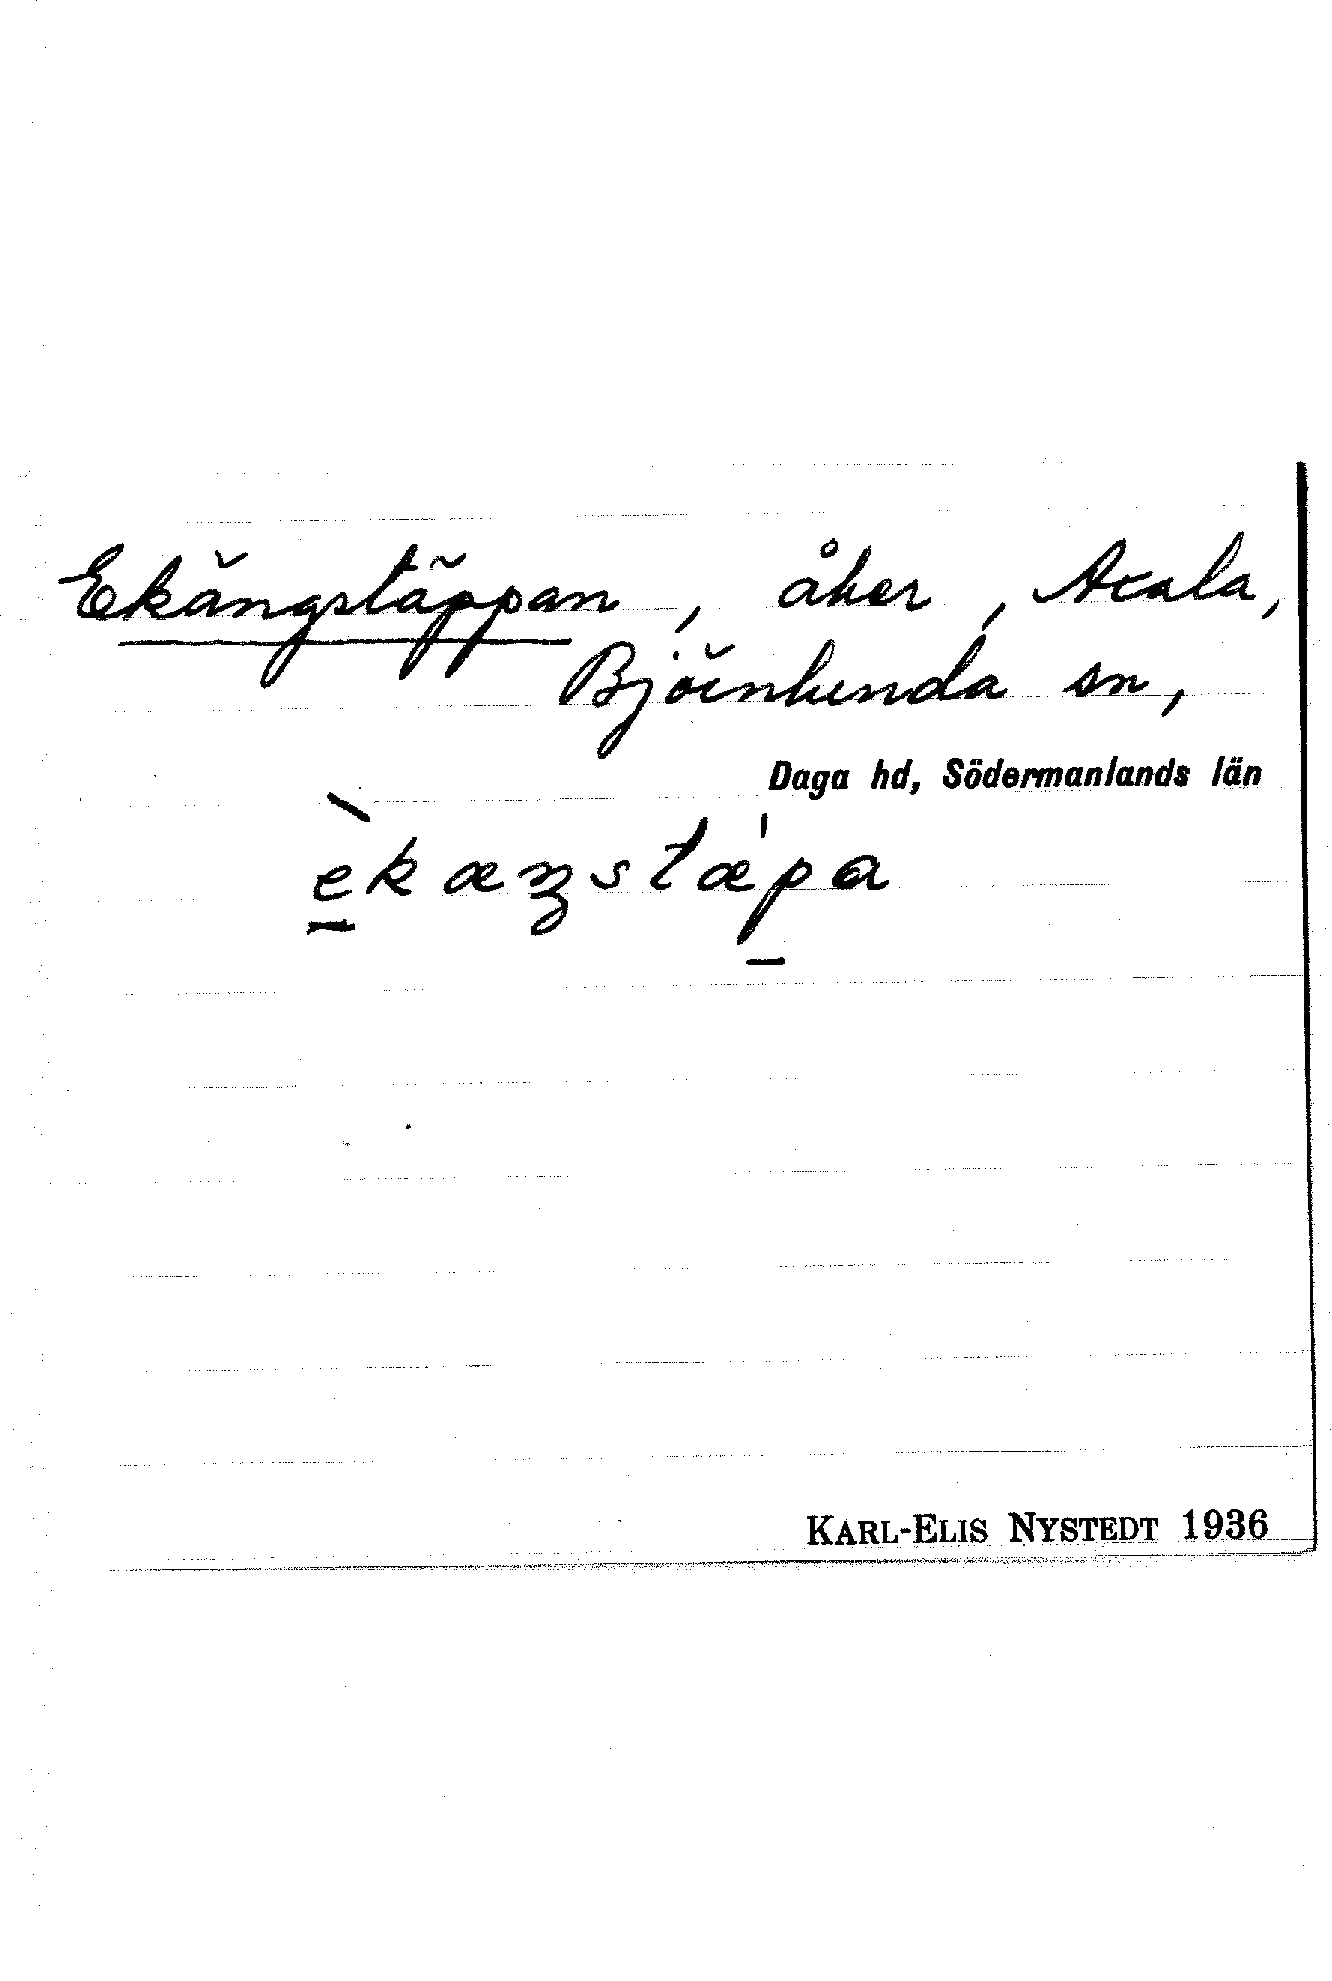 Ekängstäppan, åker, Axala,
Björnlunda sn,
Daga hd, Södermanlands län
èkæŋstæ'pa
KARL-ELIS NYSTEDT 1936